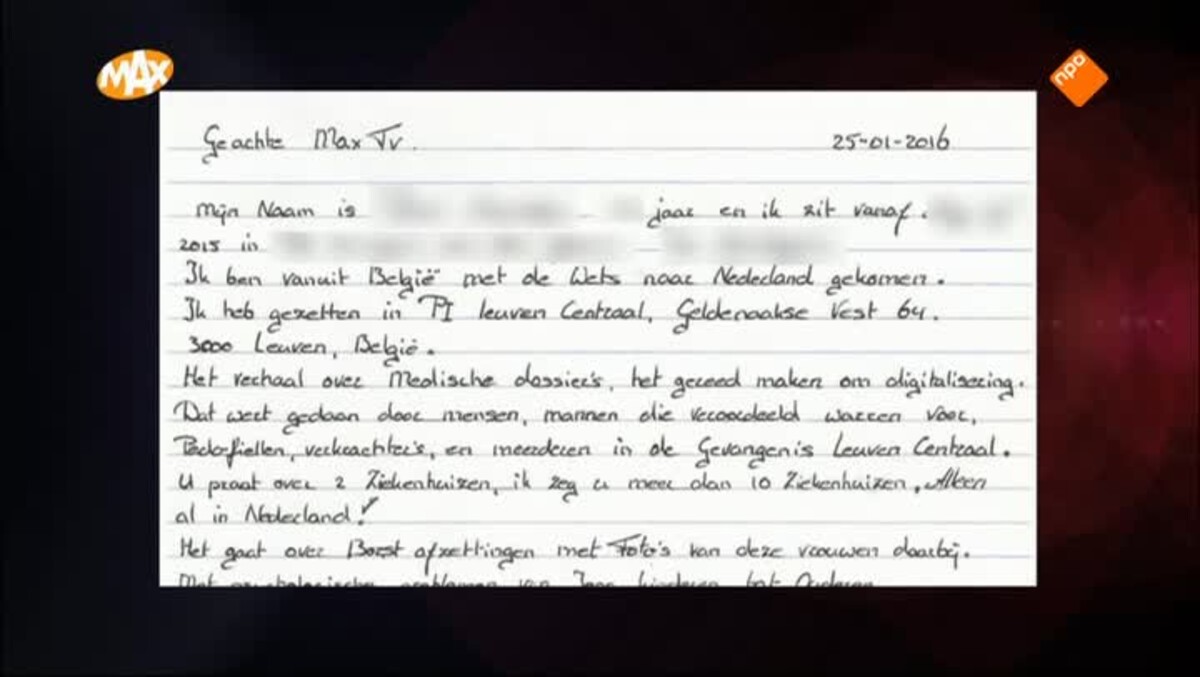 MAX
npo
Geachte Max Tv. 25-01-2016
Mijn Naam is jaar en ik zit vanaf.
2015 in
Ik ben vanuit België met de Wets naar Nederland gekomen.
Ik heb gezetten in PI leuven Centraal, Geldenaakse Vest 64.
3000 Leuven, België.
Het verhaal over Medische dossier's, het gereed maken om digitalisering.
Dat wert gedaan door mensen, mannen die veroordeeld warren voor,
Pedofiellen, verkrachter's, en meerderen in de Gevangenis Leuven Centraal.
U praat over 2 Ziekenhuizen, ik zeg u meer dan 10 Ziekenhuizen, Alleen
al in Nederland!
Het gaat over Borst afzettingen met Foto's van deze vrouwen daarbij.